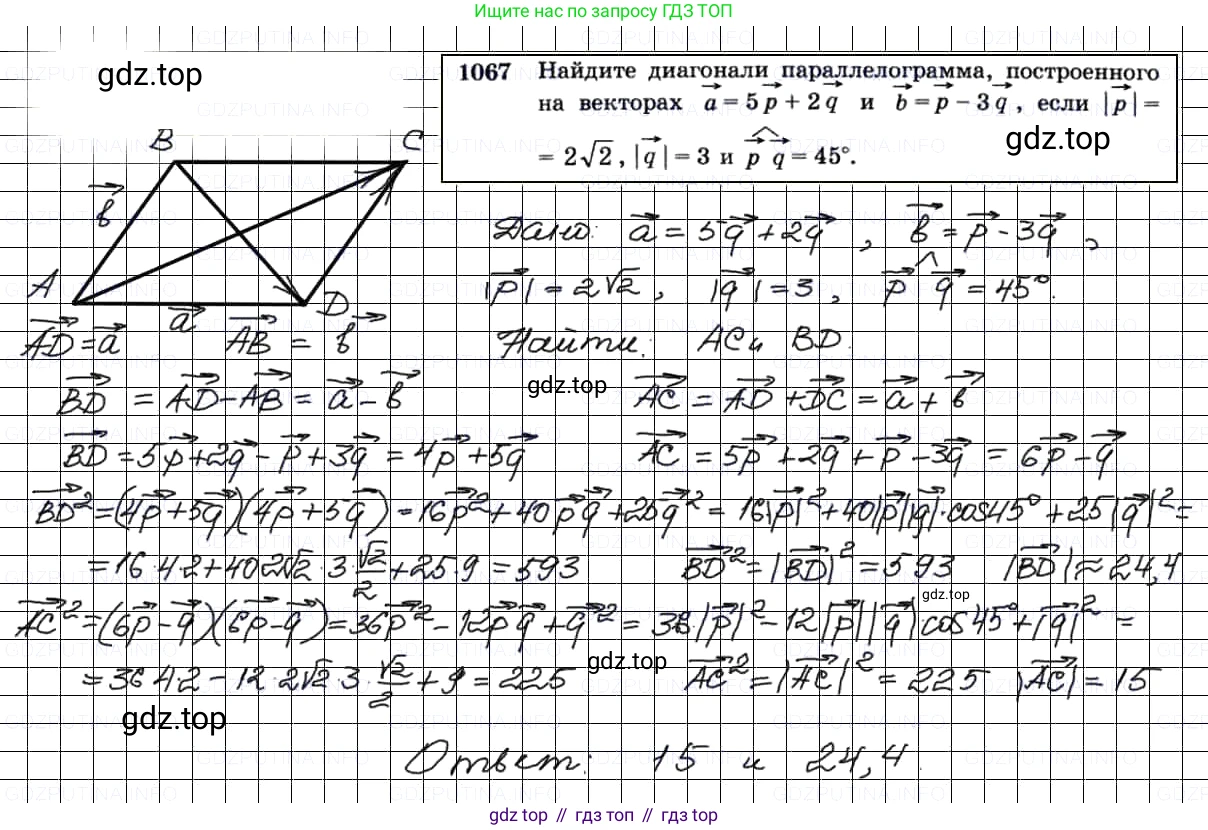 Ищите нас по запросу ГДЗ ТОП
gdz.top
1067 Найдите диагонали параллелограмма, построенного
на векторах a = 5p + 2q и b = p − 3q, если |p| =
= 2√2, |q| = 3 и p q = 45°.
gdz.top
B
C
b
A
a
D
Дано: a = 5q + 2q, b = p - 3q,
|p| = 2√2, |q| = 3, p q = 45°.
AD = a AB = b
Найти: AC и BD.
gdz.top
BD = AD - AB = a - b
AC = AD + DC = a + b
BD = 5p + 2q - p + 3q = 4p + 5q
AC = 5p + 2q + p - 3q = 6p - q
BD² = (4p + 5q)(4p + 5q) = 16p² + 40pq + 25q² = 16|p|² + 40|p||q|·cos45° + 25|q|² =
= 16·4·2 + 40·2√2·3·√2/2 + 25·9 = 593 BD² = |BD|² = 593 |BD| ≈ 24,4
gdz.top
AC² = (6p - q)(6p - q) = 36p² - 12pq + q² = 36·|p|² - 12|p||q|cos45° + |q|² =
= 36·4·2 - 12·2√2·3·√2/2 + 9 = 225 AC² = |AC|² = 225 |AC| = 15
gdz.top
gdz.top
Ответ: 15 и 24,4.
gdz top // гдз топ // gdz top